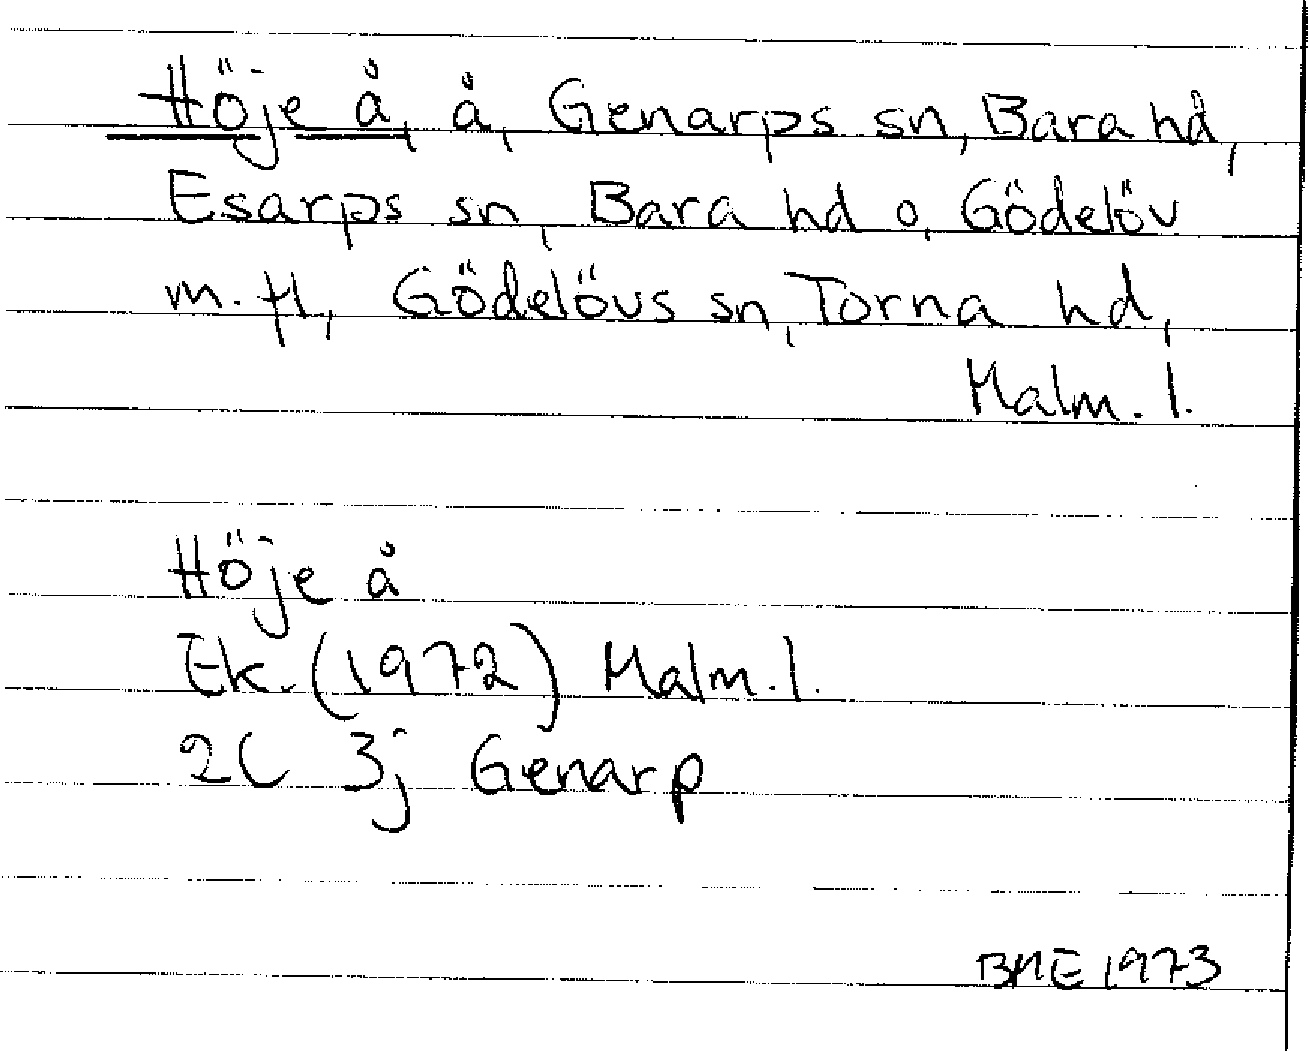 Höje å, å, Genarps sn, Bara hd,
Esarps sn, Bara hd o, Gödelöv
m. fl, Gödelövs sn, Torna hd,
Malm. l.
Höje å
Ek. (1972) Malm. l.
2C 3j Genarp
BME 1973